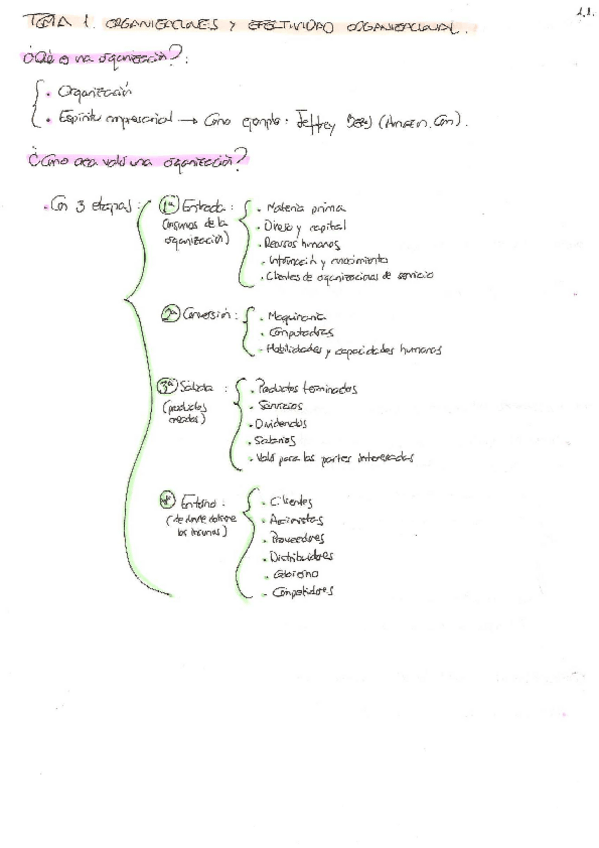 TEMA 1. ORGANIZACIONES Y EFECTIVIDAD ORGANIZACIONAL.
1.1.
¿Qué es una organización?:
• Organización
• Espíritu empresarial → Como ejemplo: Jeffrey Bezos (Amazon.Com).
¿Cómo crea valor una organización?
• Con 3 etapas:
1ª Entrada:
(insumos de la
organización)
• Materia prima
• Dinero y capital
• Recursos humanos
• Información y conocimiento
• Clientes de organizaciones de servicio
2ª Conversión:
• Maquinaria
• Computadoras
• Habilidades y capacidades humanas
3ª Salida:
(productos
creados)
• Productos terminados
• Servicios
• Dividendos
• Salarios
• Valor para las partes interesadas
4ª Entorno:
(de donde obtiene
los insumos)
• Clientes
• Accionistas
• Proveedores
• Distribuidores
• Gobierno
• Competidores